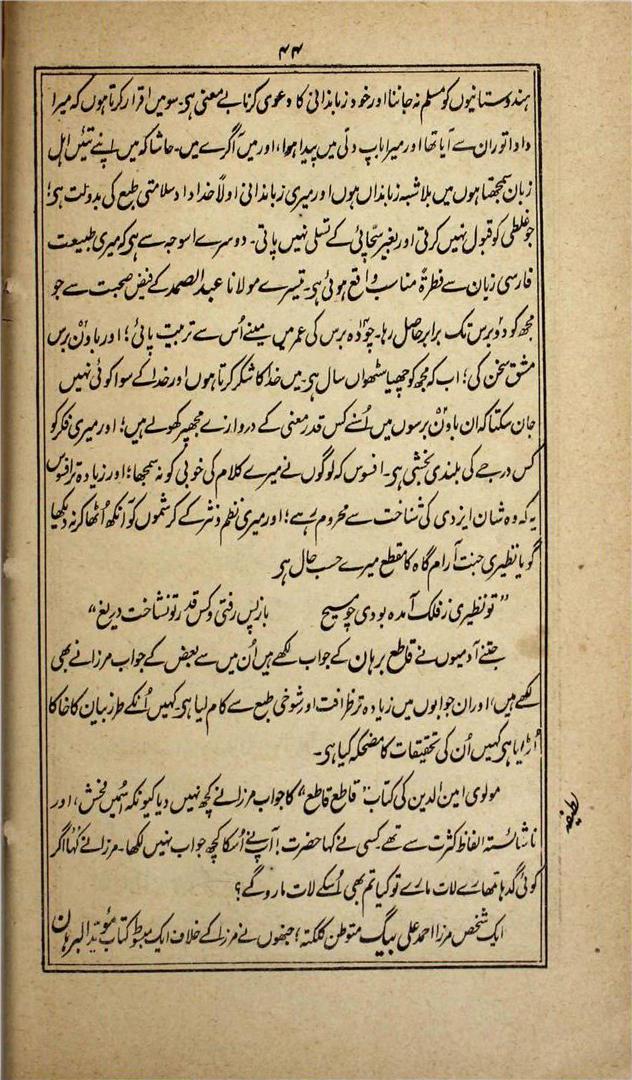 ۴۴
ہندوستانیوں کو مسلم نہ جاننا اور خود زباندانی کا دعوی کرنا بے معنی ہی۔ سو میں اقرار کرتا ہوں کہ میرا
دادا توران سے آیا تھا اور میرا باپ دلّی میں پیدا ہوا، اور میں آگرے میں۔ حاشا کہ میں اپنے تئیں اہل
زبان سمجھتا ہوں میں بلا شبہ زباندان ہوں اور میری زباندانی اولاً خداداد سلامتی طبع کی بدولت ہی؛
جو غلطی کو قبول نہیں کرتی اور بغیر سچّائی کے تسلی نہیں پاتی۔ دوسرے اسوجہ سے ہی کہ میری طبیعت
فارسی زبان سے فطرۃً مناسب واقع ہوئی ہی۔ تیسرے مولانا عبد الصمد کے فیض صحبت سے جو
مجھ کو دو برس تک برابر حاصل رہا۔ چودہ برس کی عمر میں مینے اُس سے تربیت پائی؛ اور باون برس
مشق سخن کی؛ اب کہ مجھ کو چھیاسٹھواں سال ہی۔ میں خدا کا شکر کرتا ہوں اور خدا کے سوا کوئی نہیں
جان سکتا کہ ان باون برسوں میں اُسنے کس قدر معنی کے دروازے مجھپر کھولے ہیں؛ اور میری فکر کو
کس درجے کی بلندی بخشی ہی۔ افسوس کہ لوگوں نے میرے کلام کی خوبی کو نہ سمجھا؛ اور زیادہ تر افسوس
یہ کہ وہ شان ایزدی کی شناخت سے محروم رہے؛ اور میری نظم و نثر کے کرشموں کو آنکھ اُٹھا کر نہ دیکھا
گویا نظیری جنت آرام گاہ کا مقطع میرے حسب حال ہی
”تو نظیری ز فلک آمدہ بودی چو مسیح باز پس رفتی و کس قدر تو نشناخت دریغ“
جتنے آدمیوں نے قاطع برہان کے جواب لکھے ہیں اُن میں سے بعض کے جواب مرزا نے بھی
لکھے ہیں، اور ان جوابوں میں زیادہ تر ظرافت اور شوخی طبع سے کام لیا ہی۔ کہیں اُنکے طرز بیان کا خاکا
اُڑایا ہی کہیں اُن کی تحقیقات کا مضحکہ کیا ہی۔
مولوی امین الدین کی کتاب ”قاطع قاطع“ کا جواب مرزا نے کچھ نہیں دیا کیونکہ اُسمیں فحش، اور
لطیفہ
ناشائستہ الفاظ کثرت سے تھے کسی نے کہا حضرت! آپنے اُسکا کچھ جواب نہیں لکھا۔ مرزا نے کہا، اگر
کوئی گدہا تمہارے لات مارے تو کیا تم بھی اُسکے لات ماروگے؟
ایک شخص مرزا احمد علی بیگ متوطن کلکتہ؛ جنھوں نے مرزا کے خلاف ایک مبسوط کتاب مؤید البرہان